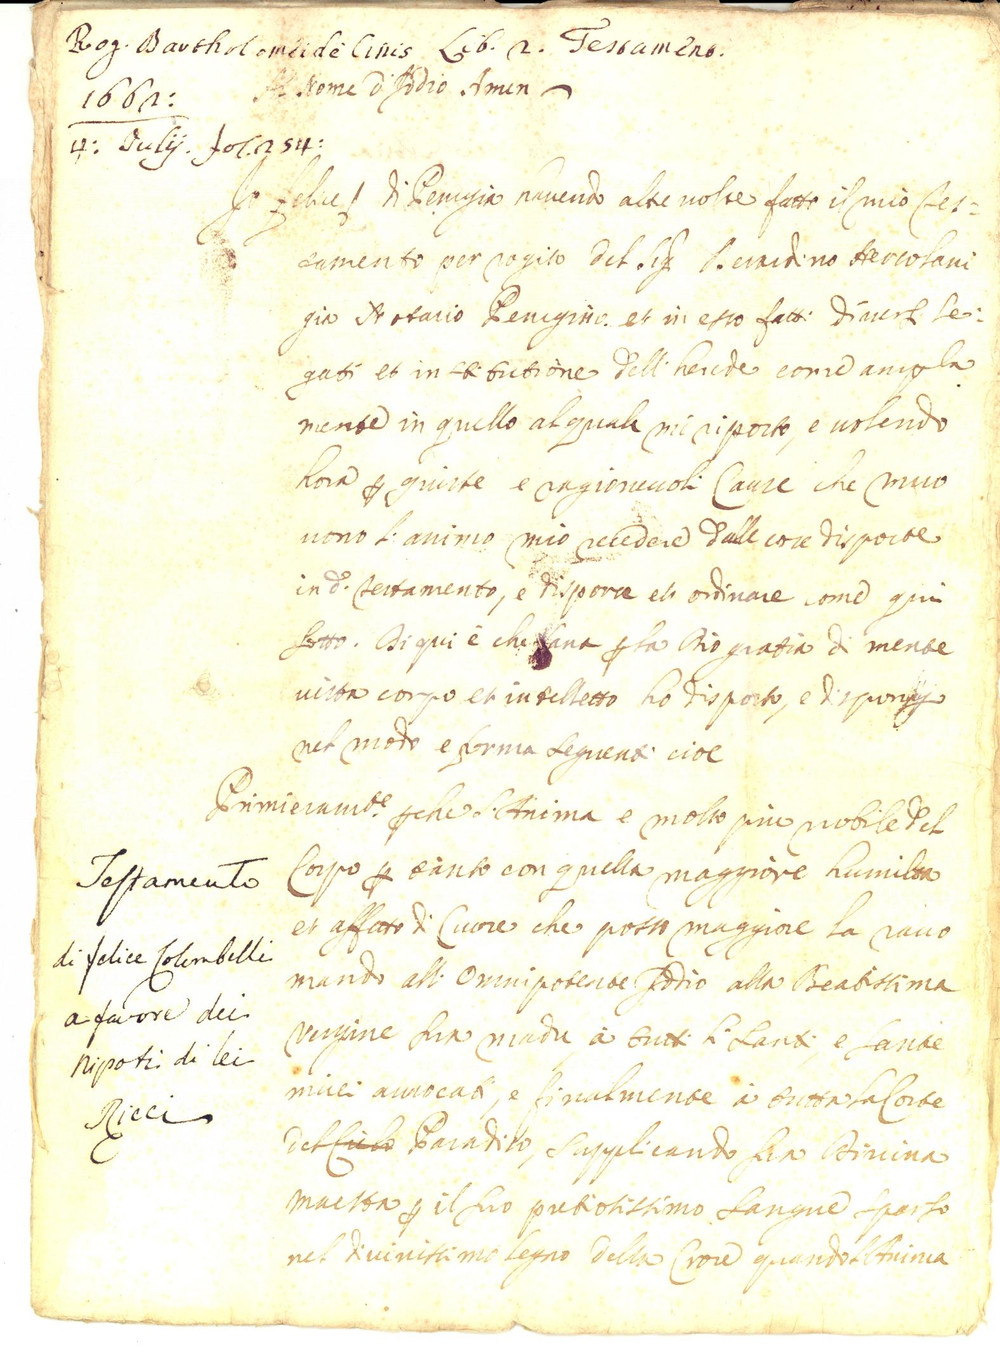 Rog. Bartholomei de Cinis Lib. 2. Testament.
Al Nome d'Iddio Amen
1662:
4: Julij. fol. 254:
Io felice di Perugia havendo altre volte fatto il mio tes=
tamento per rogito del Sig. Bernardino Hercolani
gia Notario Perugino. et in esso fatti diversi le=
gati et institutione dell'herede come ampla
mente in quello al quale mi riporto, e volendo
hora p giuste e ragionevoli Cause che muo
vono l'animo mio recedere dalle cose disposte
in do. testamento, e disporre et ordinare come qui
sotto. Di qui è che sana p la Dio gratia di mente
vista corpo et intelletto ho disposto, e dispongo
nel modo e forma seguenti cioe
Primieramte. p che l'Anima e molto piu nobile del
Corpo p tanto con quella maggiore humilta
et affetto di Cuore che posso maggiore la racco
mando all'Omnipotente Iddio alla Beatissima
Vergine sua madre à tutti li Santi, e Sante
miei avvocati, e finalmente à tutta la Corte
del Cielo Paradiso, supplicando sua Divina
Maesta p il suo pretiosissimo Sangue sparso
nel divinissimo legno della Croce quando l'Anima
Testamento
di felice Colombelli
a favore dei
Nipoti di lei
Ricci